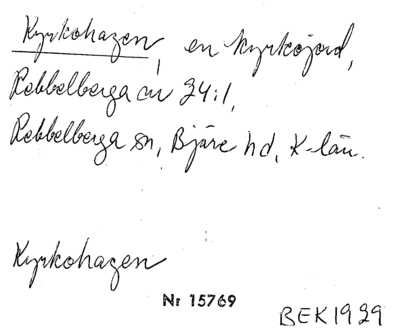 Kyrkohagen, en kyrkojord,
Rebbelberga nr 24:1,
Rebbelberga sn, Bjäre hd, K-län.
Kyrkohagen
Nr 15769
BEK1929